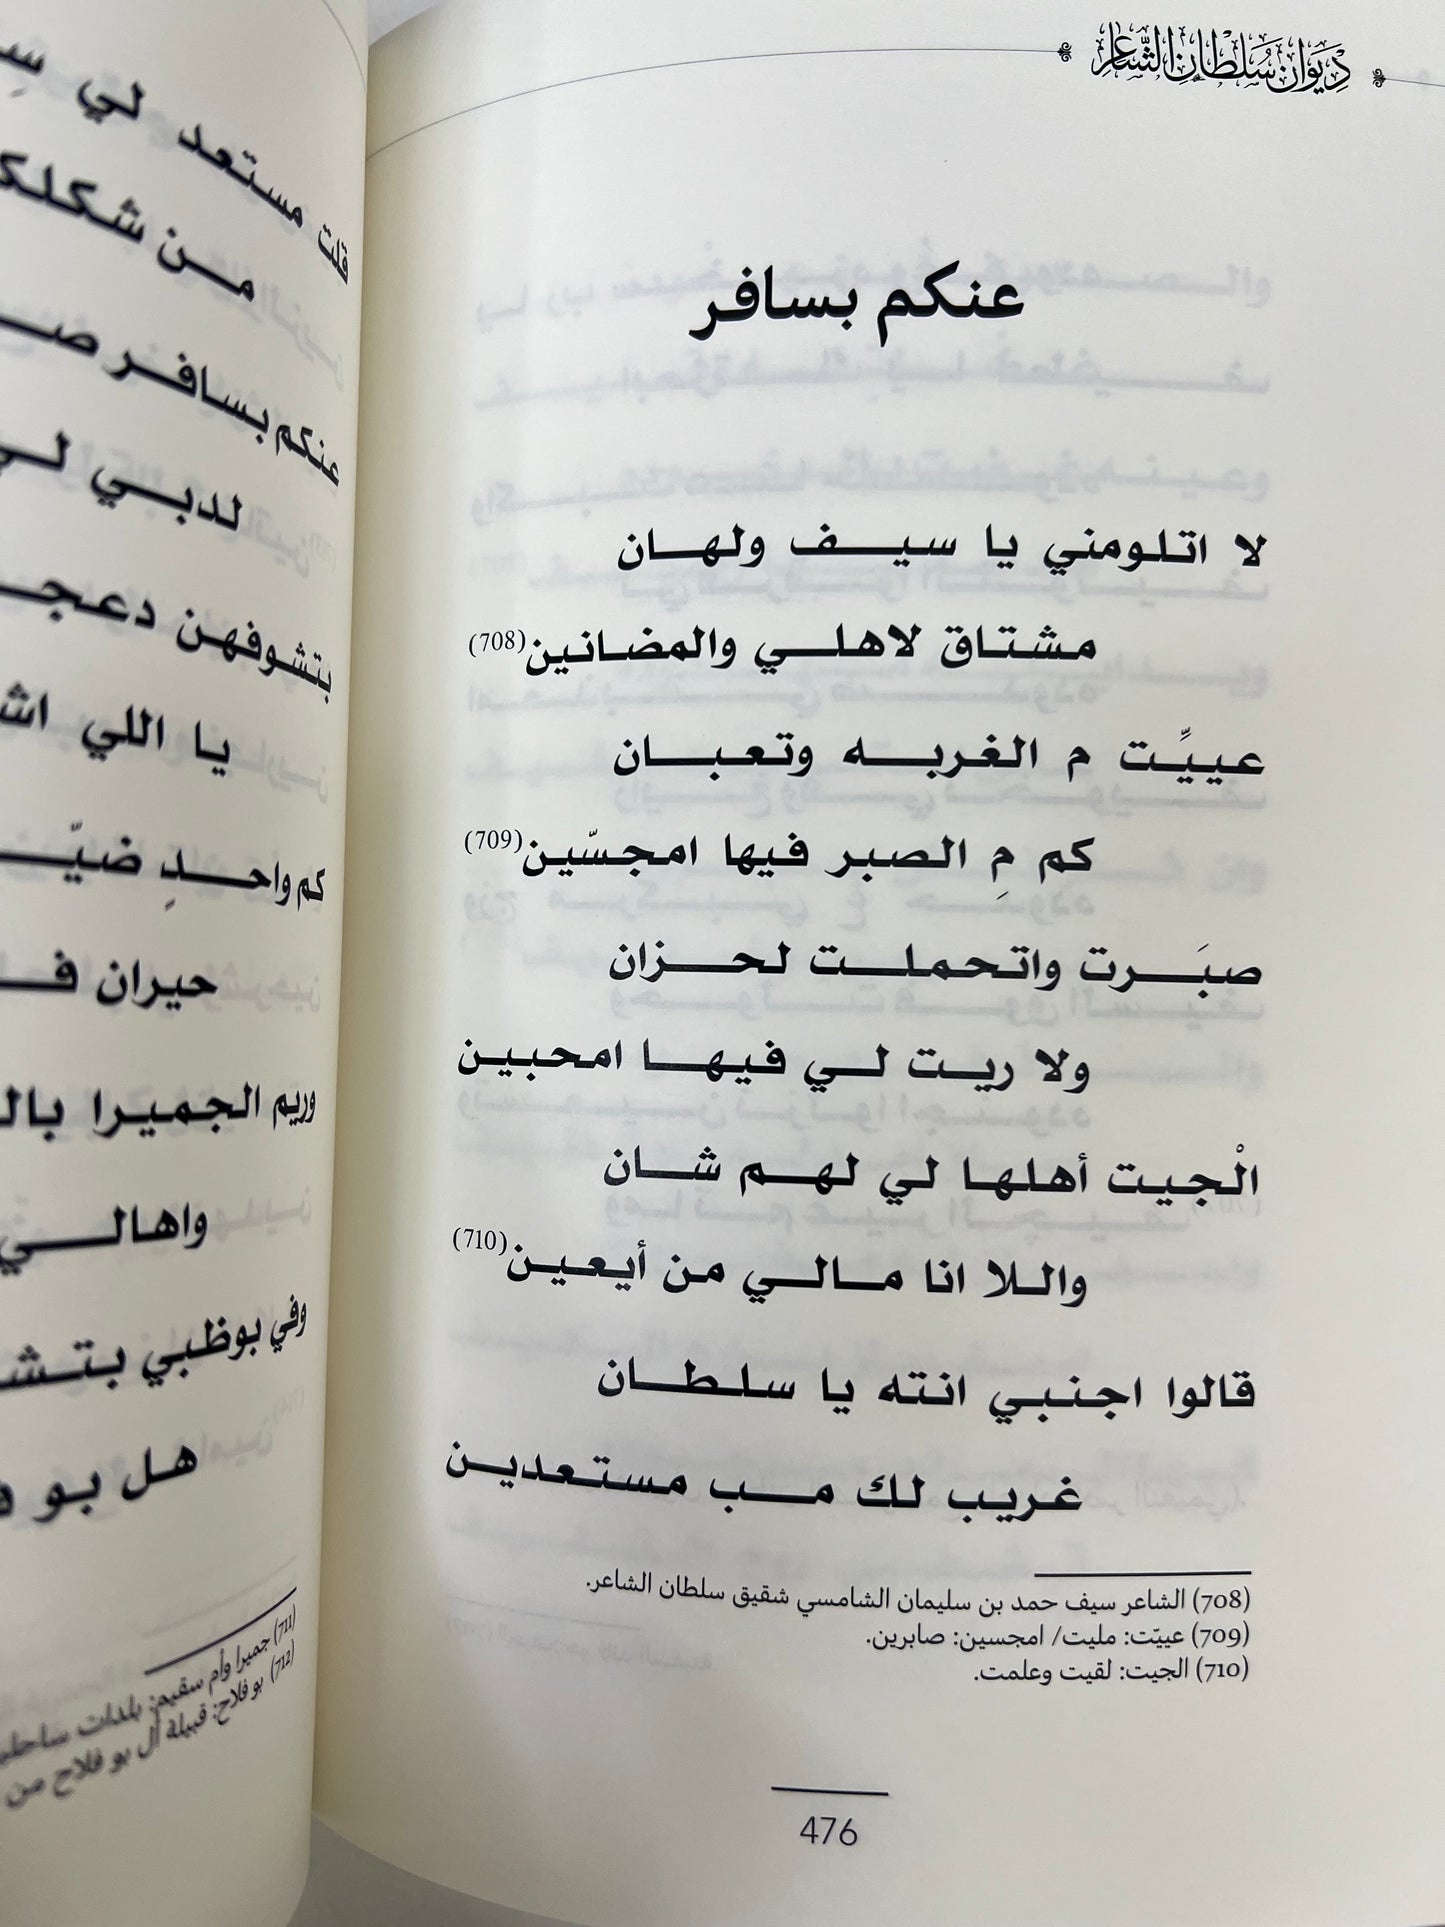 ديوان سلطان الشاعر
عنكم بسافر
لا اتلومني يا سيف ولهان
مشتاق لاهلي والمضانين(708)
عييِّت م الغربه وتعبان
كم مِ الصبر فيها امجسّين(709)
صبَرت واتحملت لحزان
ولا ريت لي فيها امحبين
الْجيت أهلها لي لهم شان
واللا انا مالي من أيعين(710)
قالوا اجنبي انته يا سلطان
غريب لك مب مستعدين
(708) الشاعر سيف حمد بن سليمان الشامسي شقيق سلطان الشاعر.
(709) عييّت: مليت/ امجسين: صابرين.
(710) الجيت: لقيت وعلمت.
476
قلت مستعد لي
من
عنكم بسافر
لدبي
بتشوفهن
يا اللي
كم واحدِ
حيران
وريم الجميرا
واهالي
وفي بوظبي
هل بو
(711) جميرا وأم سقيم: بلدات
(712) بو فلاح: قبيلة آل بو فلاح من